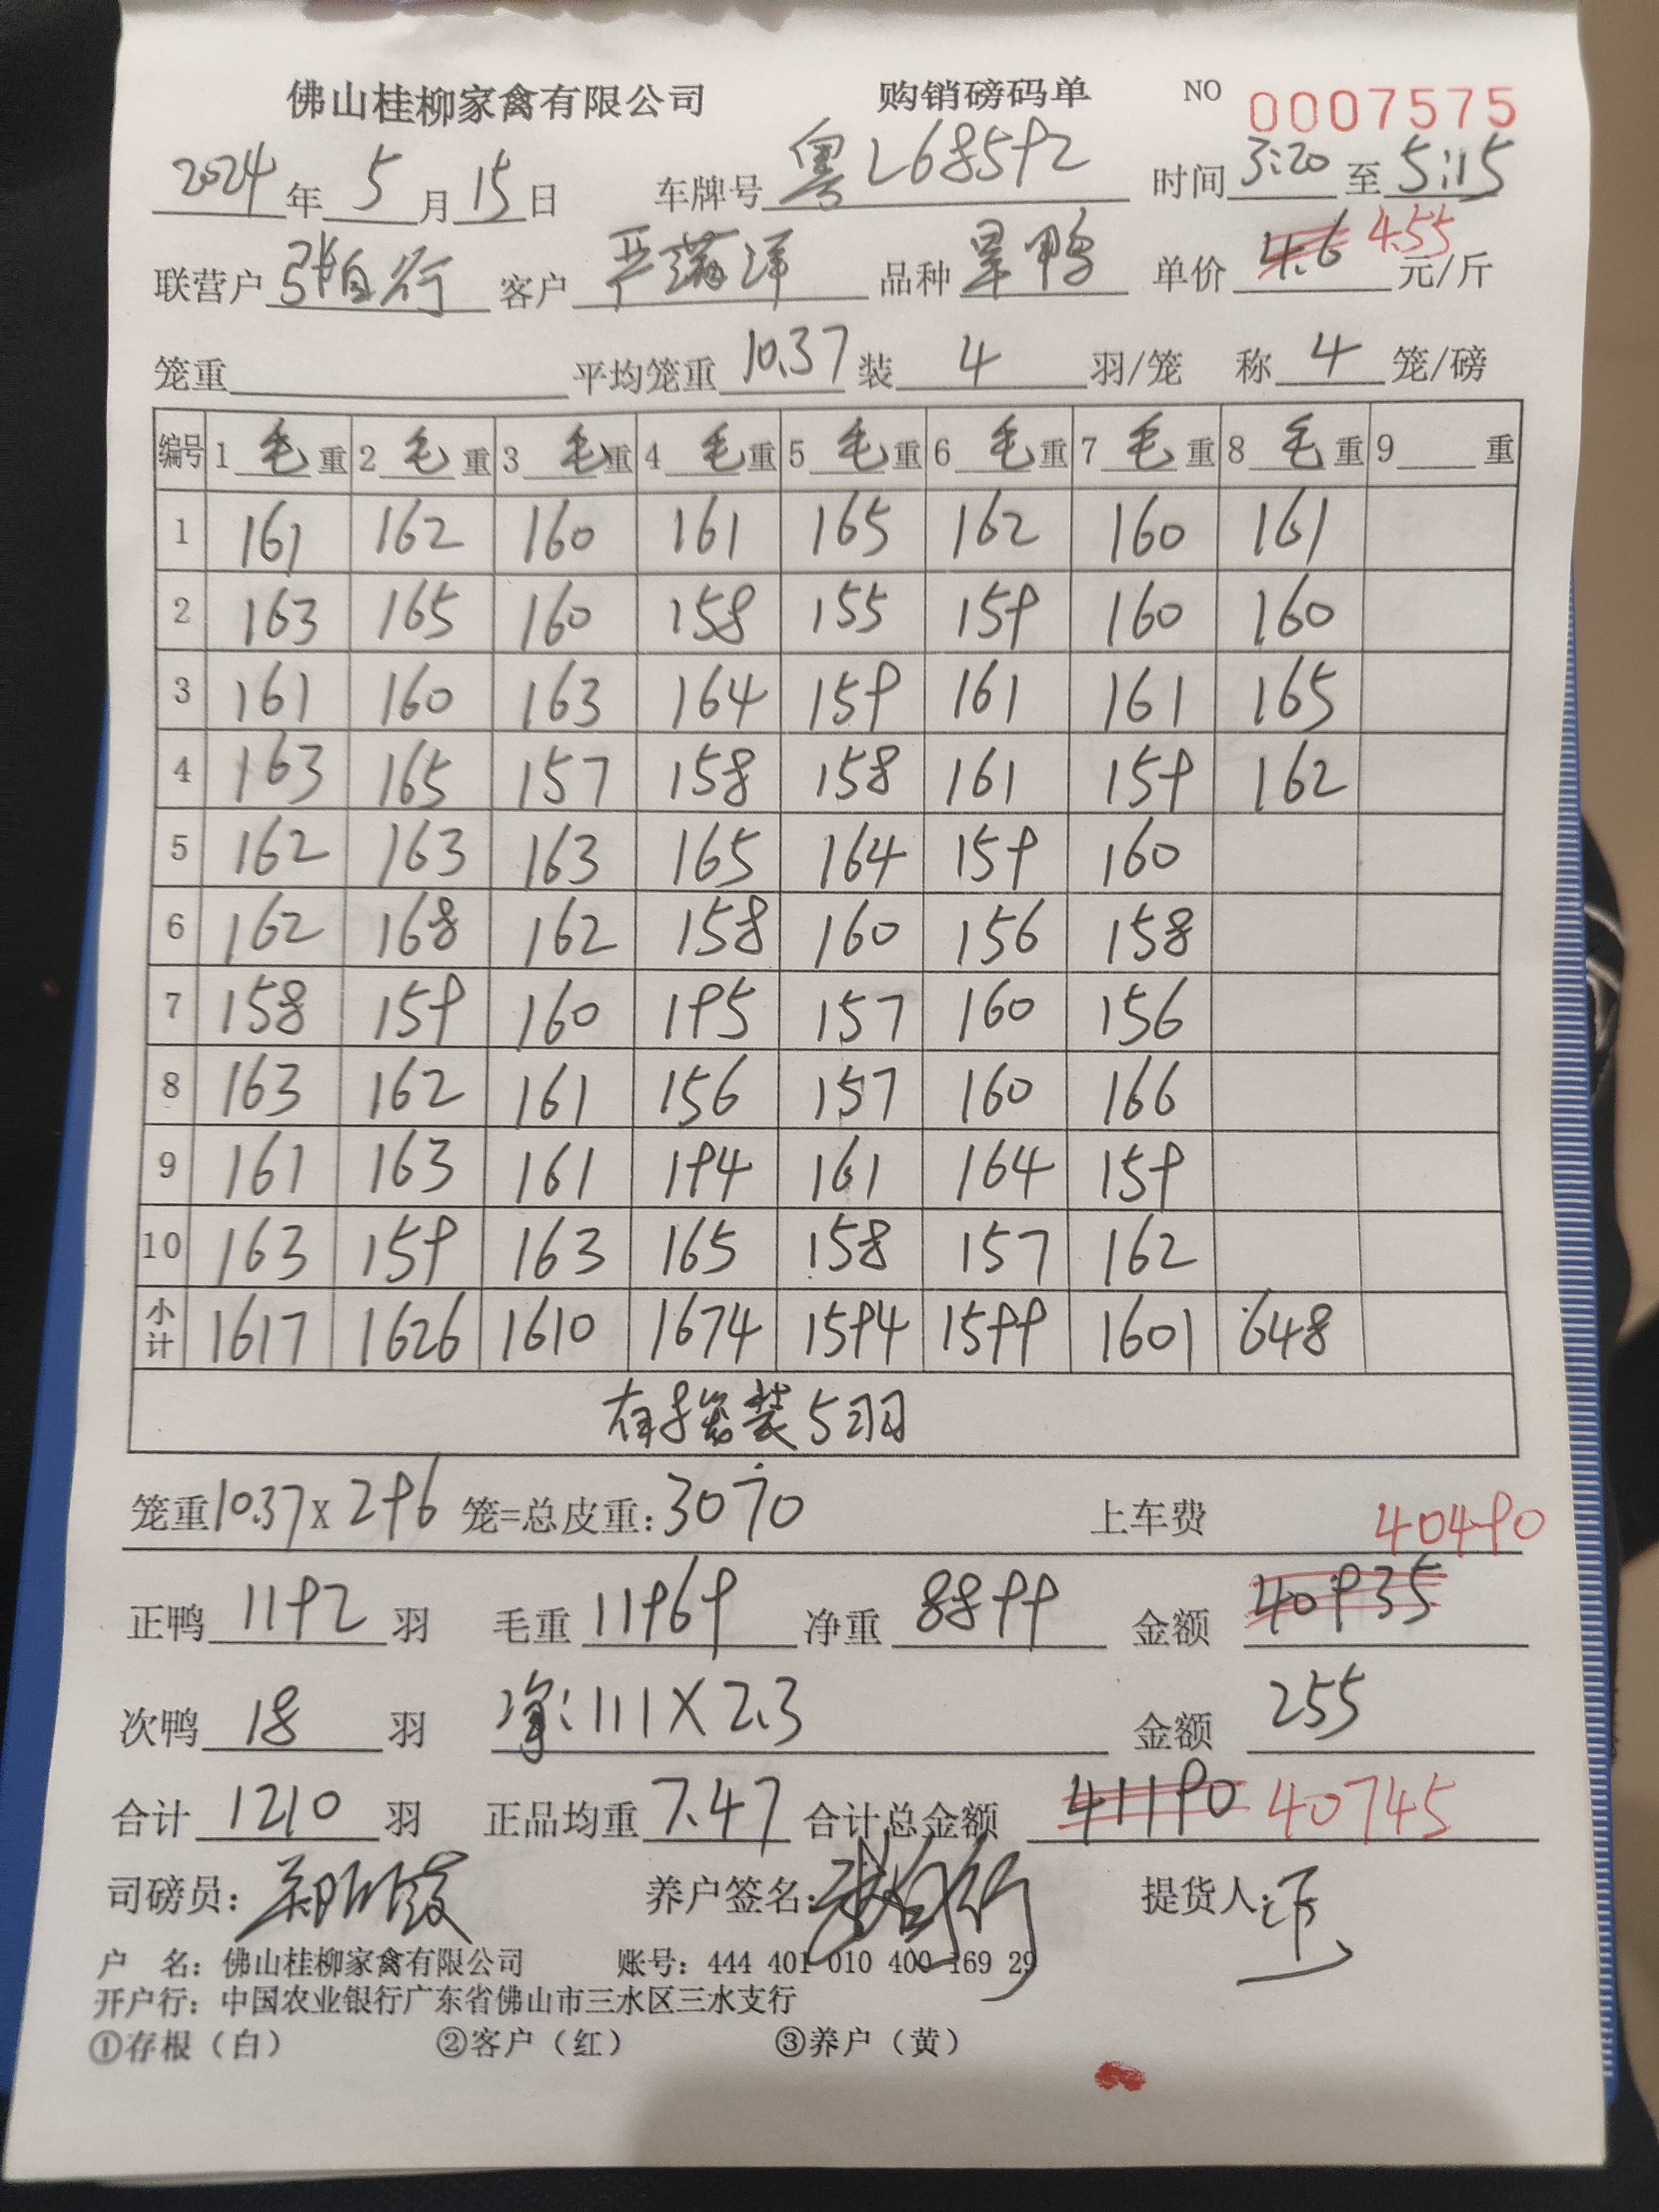 佛山桂柳家禽有限公司 购销磅码单 NO 0007575
2024年5月15日 车牌号 粤L68592 时间 3:20 至 5:15
联营户 张自行 客户 严 洋 品种 旱鸭 单价 4.6 4.55 元/斤
笼重 平均笼重 10.37 装 4 羽/笼 称 4 笼/磅
编号 1 毛 重 2 毛 重 3 毛 重 4 毛 重 5 毛 重 6 毛 重 7 毛 重 8 毛 重 9 重
1 161 162 160 161 165 162 160 161
2 163 165 160 158 155 159 160 160
3 161 160 163 164 159 161 161 165
4 163 165 157 158 158 161 159 162
5 162 163 163 165 164 159 160
6 162 168 162 158 160 156 158
7 158 159 160 195 157 160 156
8 163 162 161 156 157 160 166
9 161 163 161 194 161 164 159
10 163 159 163 165 158 157 162
小计 1617 1626 1610 1674 1594 1599 1601 648
有 装5羽
笼重 10.37 x 296 笼=总皮重: 3070 上车费 40490
正鸭 1192 羽 毛重 11969 净重 8899 金额 40935
次鸭 18 羽 净: 111 X 2.3 金额 255
合计 1210 羽 正品均重 7.47 合计总金额 41190 40745
司磅员: 养户签名: 张自行 提货人:
户 名: 佛山桂柳家禽有限公司 账号: 444 401 010 400 169 29
开户行: 中国农业银行广东省佛山市三水区三水支行
①存根（白） ②客户（红） ③养户（黄）